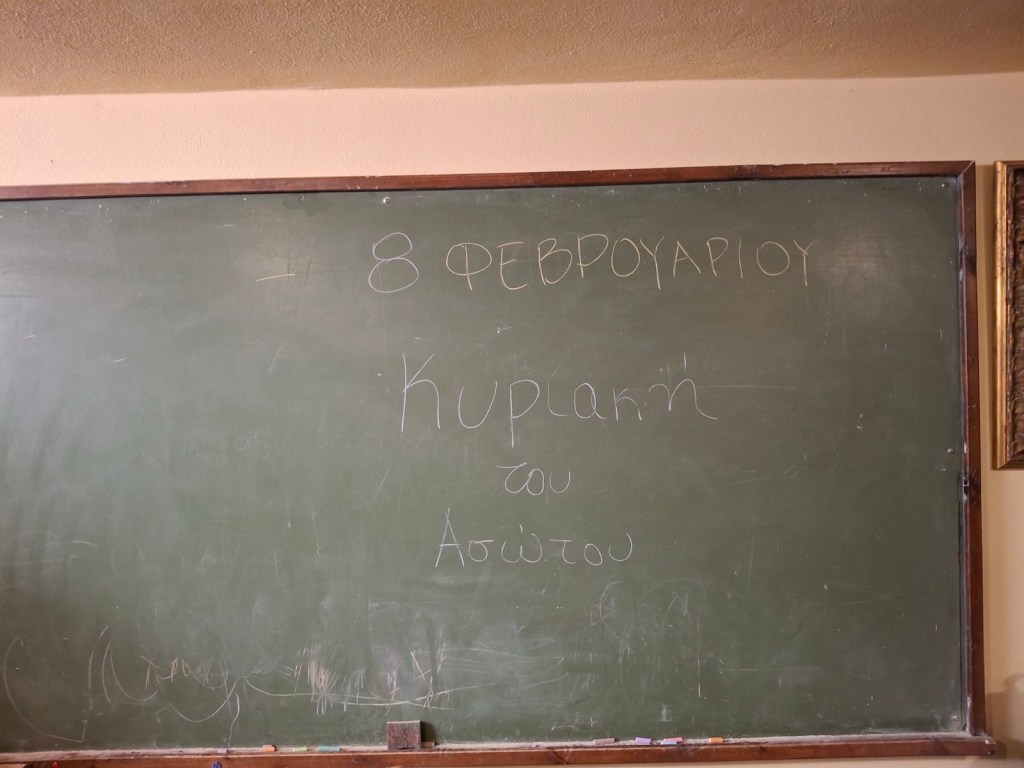 - 8 ΦΕΒΡΟΥΑΡΙΟΥ
Κυριακή
του
Ασώτου